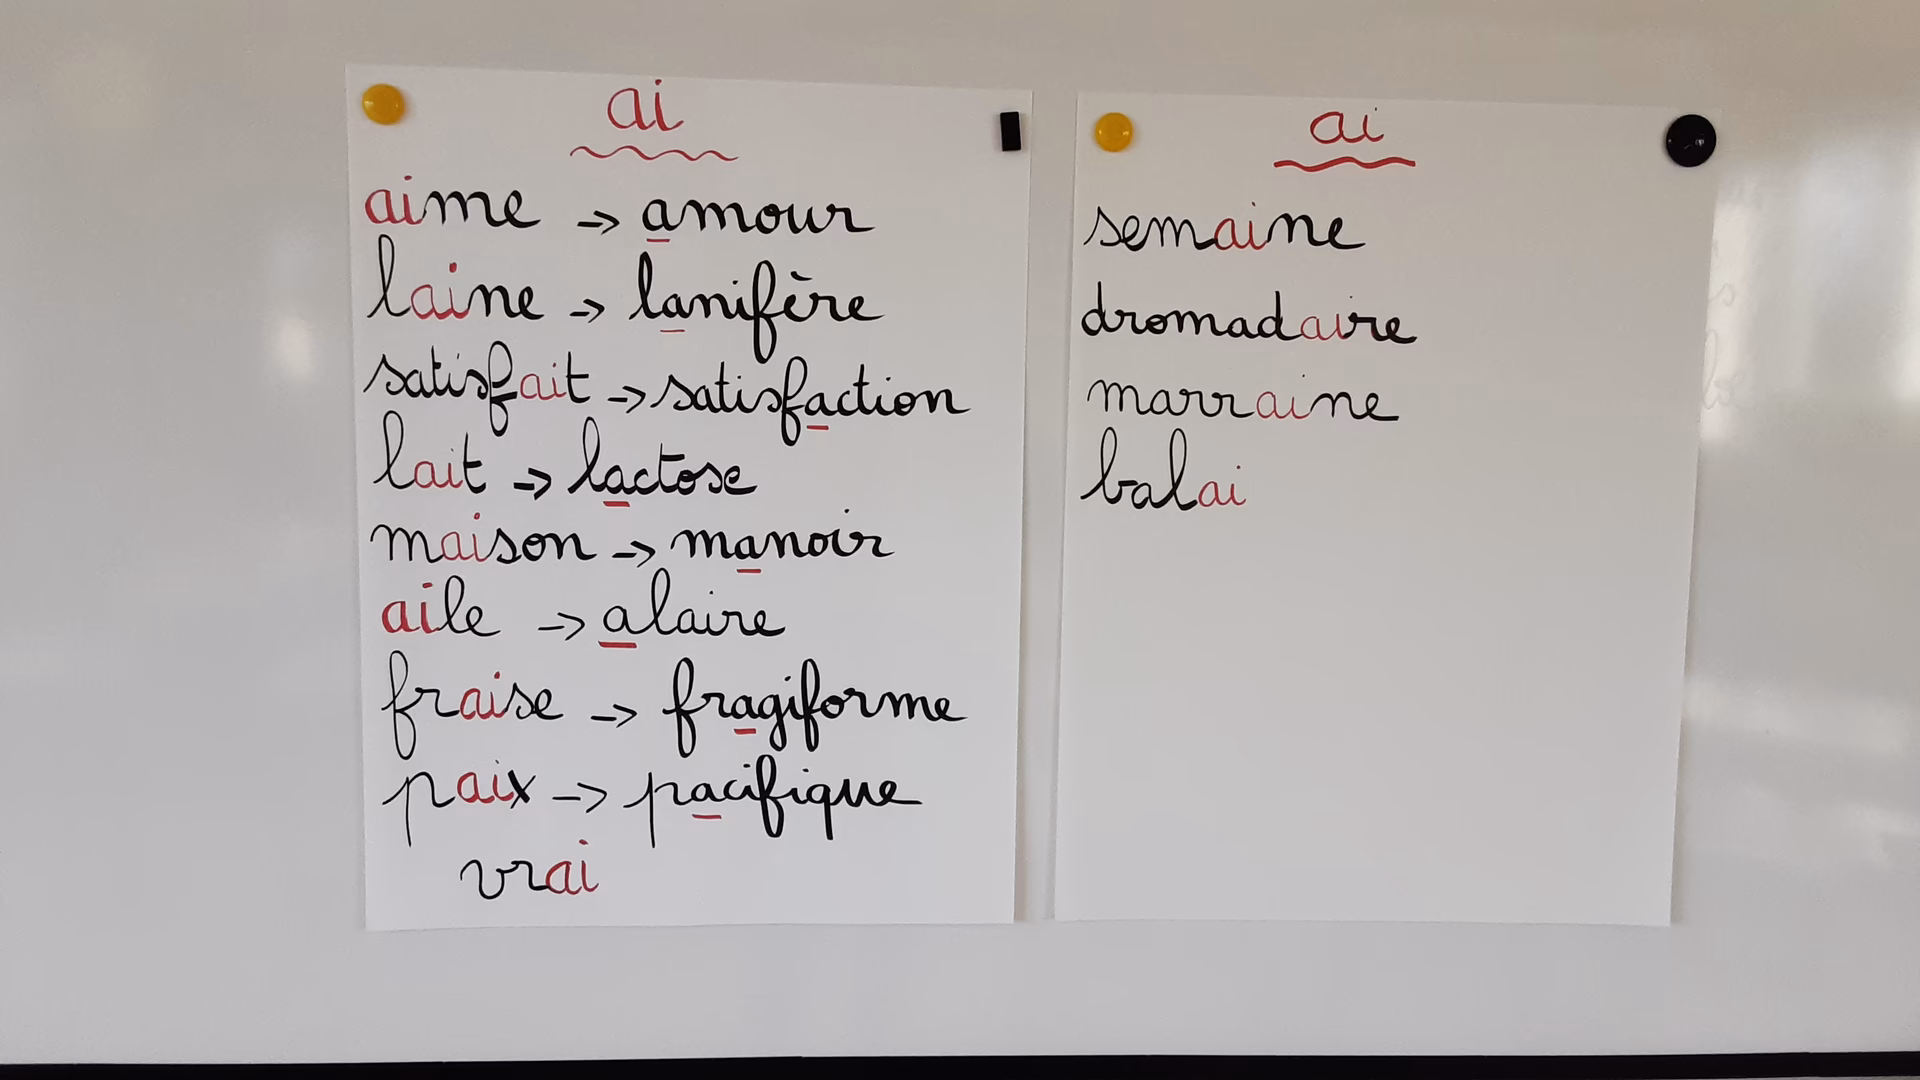 ai
aime -> amour
laine -> lanifère
satisfait -> satisfaction
lait -> lactose
maison -> manoir
aile -> alaire
fraise -> fragiforme
paix -> pacifique
vrai
ai
semaine
dromadaire
marraine
balai